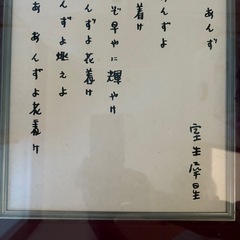 あんず
室生犀星
んずよ
着け
ぞ早やに輝やけ
んずよ花着け
んずよ燃えよ
あ あんずよ花着け